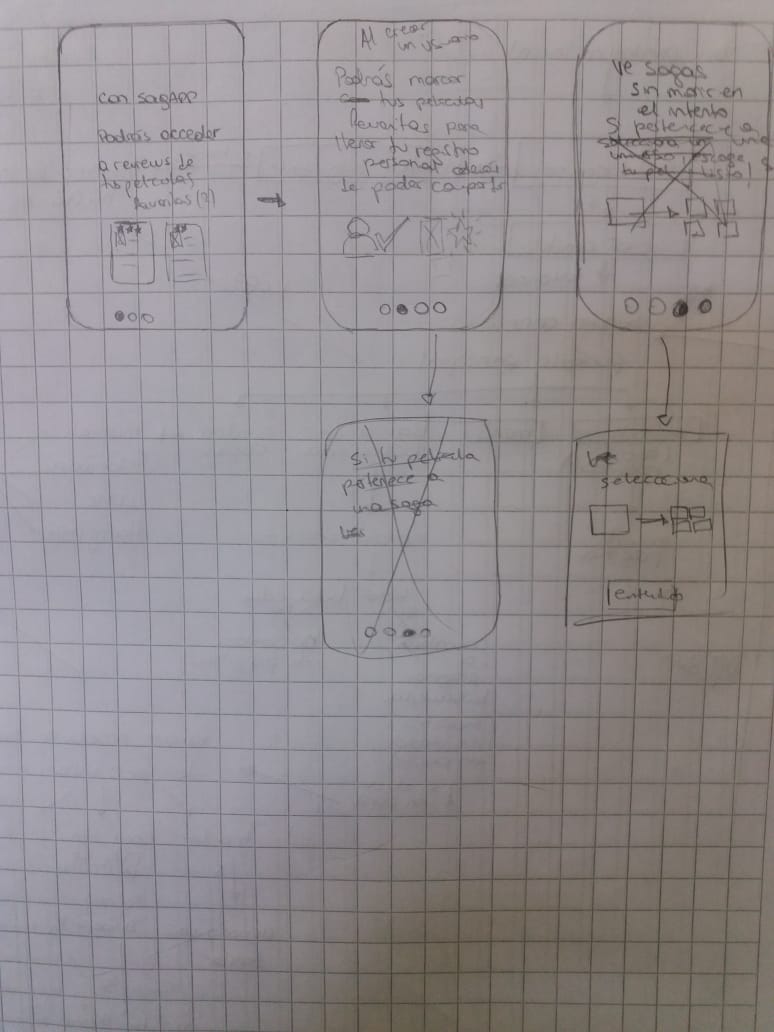 con sagAPP
Podrás acceder
a reviews de
tus películas
favoritas (?)
Al crear
un usuario
Podrás marcar
tus películas
favoritas para
llevar tu registro
personal además
de poder compartir
Ve sagas
sin morir en
el intento
Si pertenece a
selecciona una
Si tu película
pertenece a
una saga
Ve
selecciona
entendido